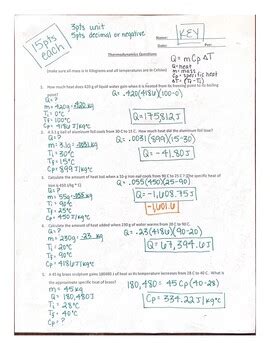 3pts unit
5pts decimal or negative
15pts each
KEY
Name:
Date:
Per:
Thermodynamics Questions
(make sure all mass is in kilograms and all temperatures are in Celsius)
Q = mCpΔT
Q = heat
m = mass
Cp = specific heat
ΔT = (Tf - Ti)
1. How much heat does 420 g of liquid water gain when it is heated from its freezing point to its boiling point?
Q = ?
m = 420g = .420 kg
Ti = 0°C
Tf = 100°C
Cp = 4186 J/kg°C
Q = .420(4186)(100-0)
Q = 175812 J
foil cools from 30 C to 15 C. How much heat did the aluminum foil lose?
Q = ?
m = 3.1g = .0031 kg
Ti = 30°C
Tf = 15°C
Cp = 899 J/kg°C
Q = .0031(899)(15-30)
Q = -41.80 J
3. Calculate the amount of heat lost when a 55 g
iron is 450 J/kg * C)
Q = ?
m = 55g = .055 kg
Ti = 90°C
Tf = 25°C
Cp = 450 J/kg°C
Q = .055(450)(25-90)
Q = -1,608.75 J
4. Calculate the amount of heat added when 230 g of water warms from
Q = ?
m = 230g = .23 kg
Ti = 20°C
Tf = 90°C
Cp = 4186 J/kg°C
Q = .23(4186)(90-20)
Q = 67,394.6 J
5. A 45 kg brass sculpture gains 180480 J of heat as its temperature increases from 28 C to 40 C. What is
the approximate specific heat of brass?
m = 45 kg
Q = 180,480 J
Ti = 28°C
Tf = 40°C
Cp = ?
180,480 = 45 Cp (40-28)
Cp = 334.22 J/kg°C